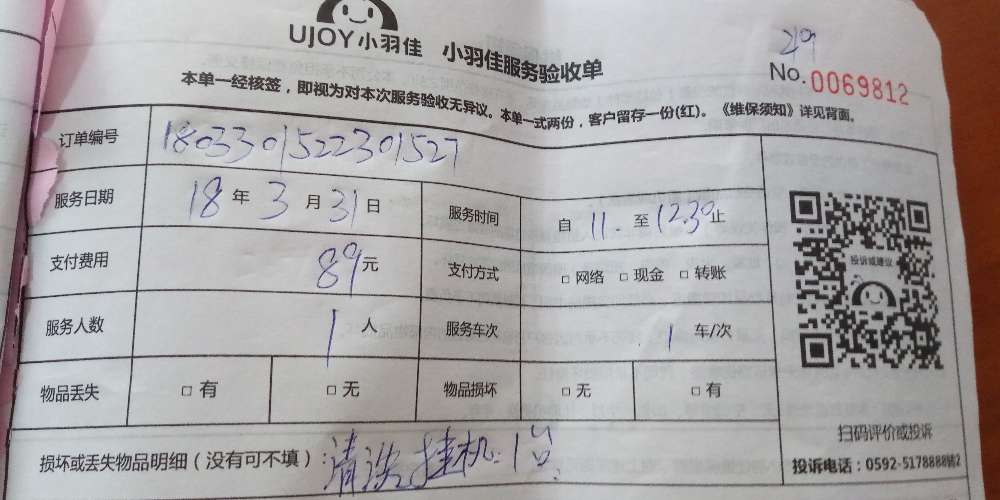 UJOY小羽佳 小羽佳服务验收单
No.0069812
本单一经核签，即视为对本次服务验收无异议。本单一式两份，客户留存一份(红)。《维保须知》详见背面。
订单编号 1803301522301527
服务日期 18 年 3 月 31 日 服务时间 自 11. 至 12.30 止
支付费用 89 元 支付方式 □ 网络 □ 现金 □ 转账
服务人数 1 人 服务车次 1 车/次
物品丢失 □ 有 □ 无 物品损坏 □ 无 □ 有
损坏或丢失物品明细（没有可不填）: 清洗挂机1台
投诉或建议
扫码评价或投诉
投诉电话：0592-5178888转2